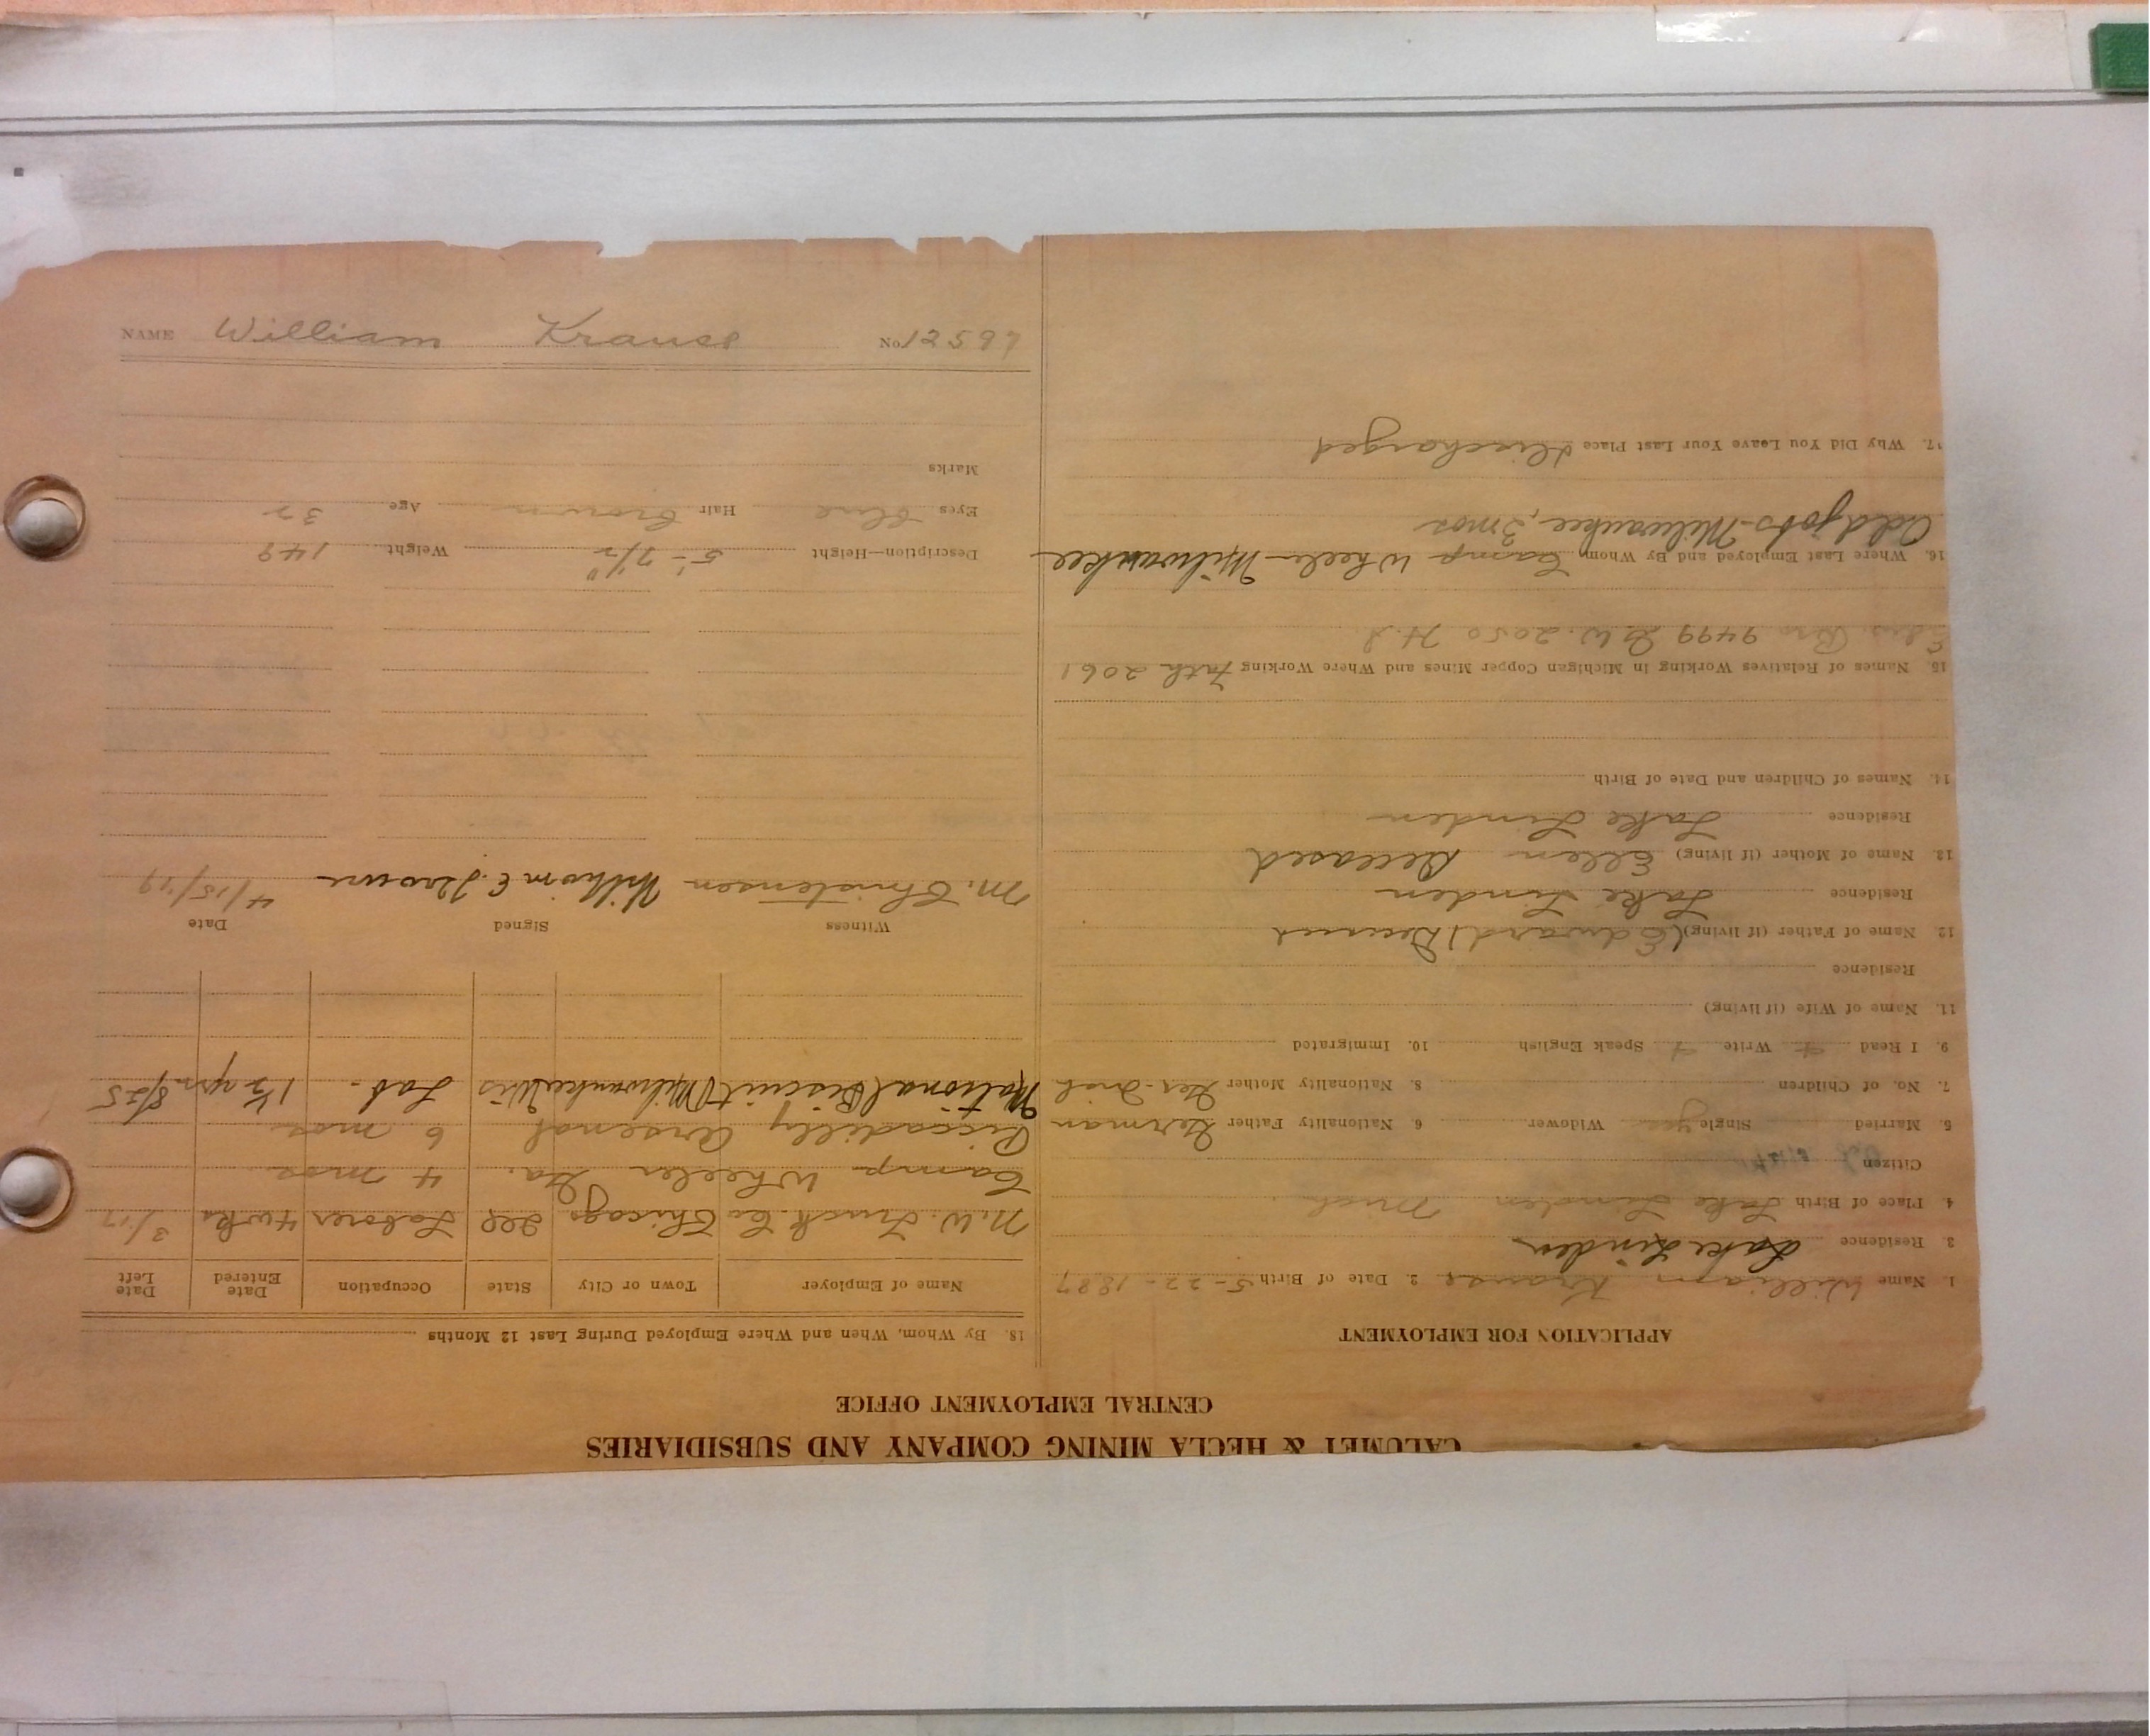 CALUMET & HECLA MINING COMPANY AND SUBSIDIARIES
CENTRAL EMPLOYMENT OFFICE
APPLICATION FOR EMPLOYMENT
1. Name William Krause 2. Date of Birth 5-22-1887
3. Residence Lake Linden
4. Place of Birth Lake Linden Mich
Citizen
5. Married Single yes Widower 6. Nationality Father German
7. No. of Children 8. Nationality Mother Ger-Irish
9. I Read + Write + Speak English 10. Immigrated
11. Name of Wife (if living)
Residence
12. Name of Father (if living) (Edward) Deceased
Residence Lake Linden
13. Name of Mother (if living) Ellen Deceased
Residence Lake Linden
14. Names of Children and Date of Birth
15. Names of Relatives Working in Michigan Copper Mines and Where Working Fath 2061
Bro 9499 2050
16. Where Last Employed and By Whom Camp Wheeler Milwaukee
Odd jobs-Milwaukee, 3 mos
17. Why Did You Leave Your Last Place discharged
18. By Whom, When and Where Employed During Last 12 Months
Name of Employer Town or City State Occupation Date Entered Date Left
N.W. Truck Co Chicago Ill Laborer 4 wks 3/17
Camp Wheeler Ga. 4 mos
Piccadilly Arsenal 6 mos
National Biscuit Milwaukee Wis Lab- 1½ yrs 8/25
Witness Signed Date
M. Christensen William E. 4/15/19
Description—Height 5'-7½" Weight 149
Eyes Blue Hair Brown Age 32
Marks
NAME William Krause No. 12597